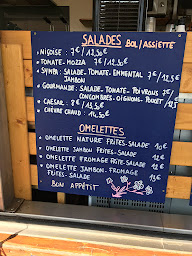 SALADES BOL/ASSIETTE
NIÇOISE : 7€/12,50€
TOMATE-MOZZA 7€/12,50€
SYMPA : SALADE, TOMATE, EMMENTAL
JAMBON 7€/12,50€
GOURMANDE : SALADE, TOMATE, POIVRONS
CONCOMBRES, OIGNONS, POULET
CAESAR : 8€/13,50€
CHÈVRE CHAUD : 14,50€
OMELETTES
OMELETTE NATURE FRITES-SALADE 10€
OMELETTE JAMBON FRITES-SALADE 12€
OMELETTE FROMAGE FRITES-SALADE 12€
OMELETTE JAMBON, FROMAGE
FRITES-SALADE 13€
BON APPÉTIT